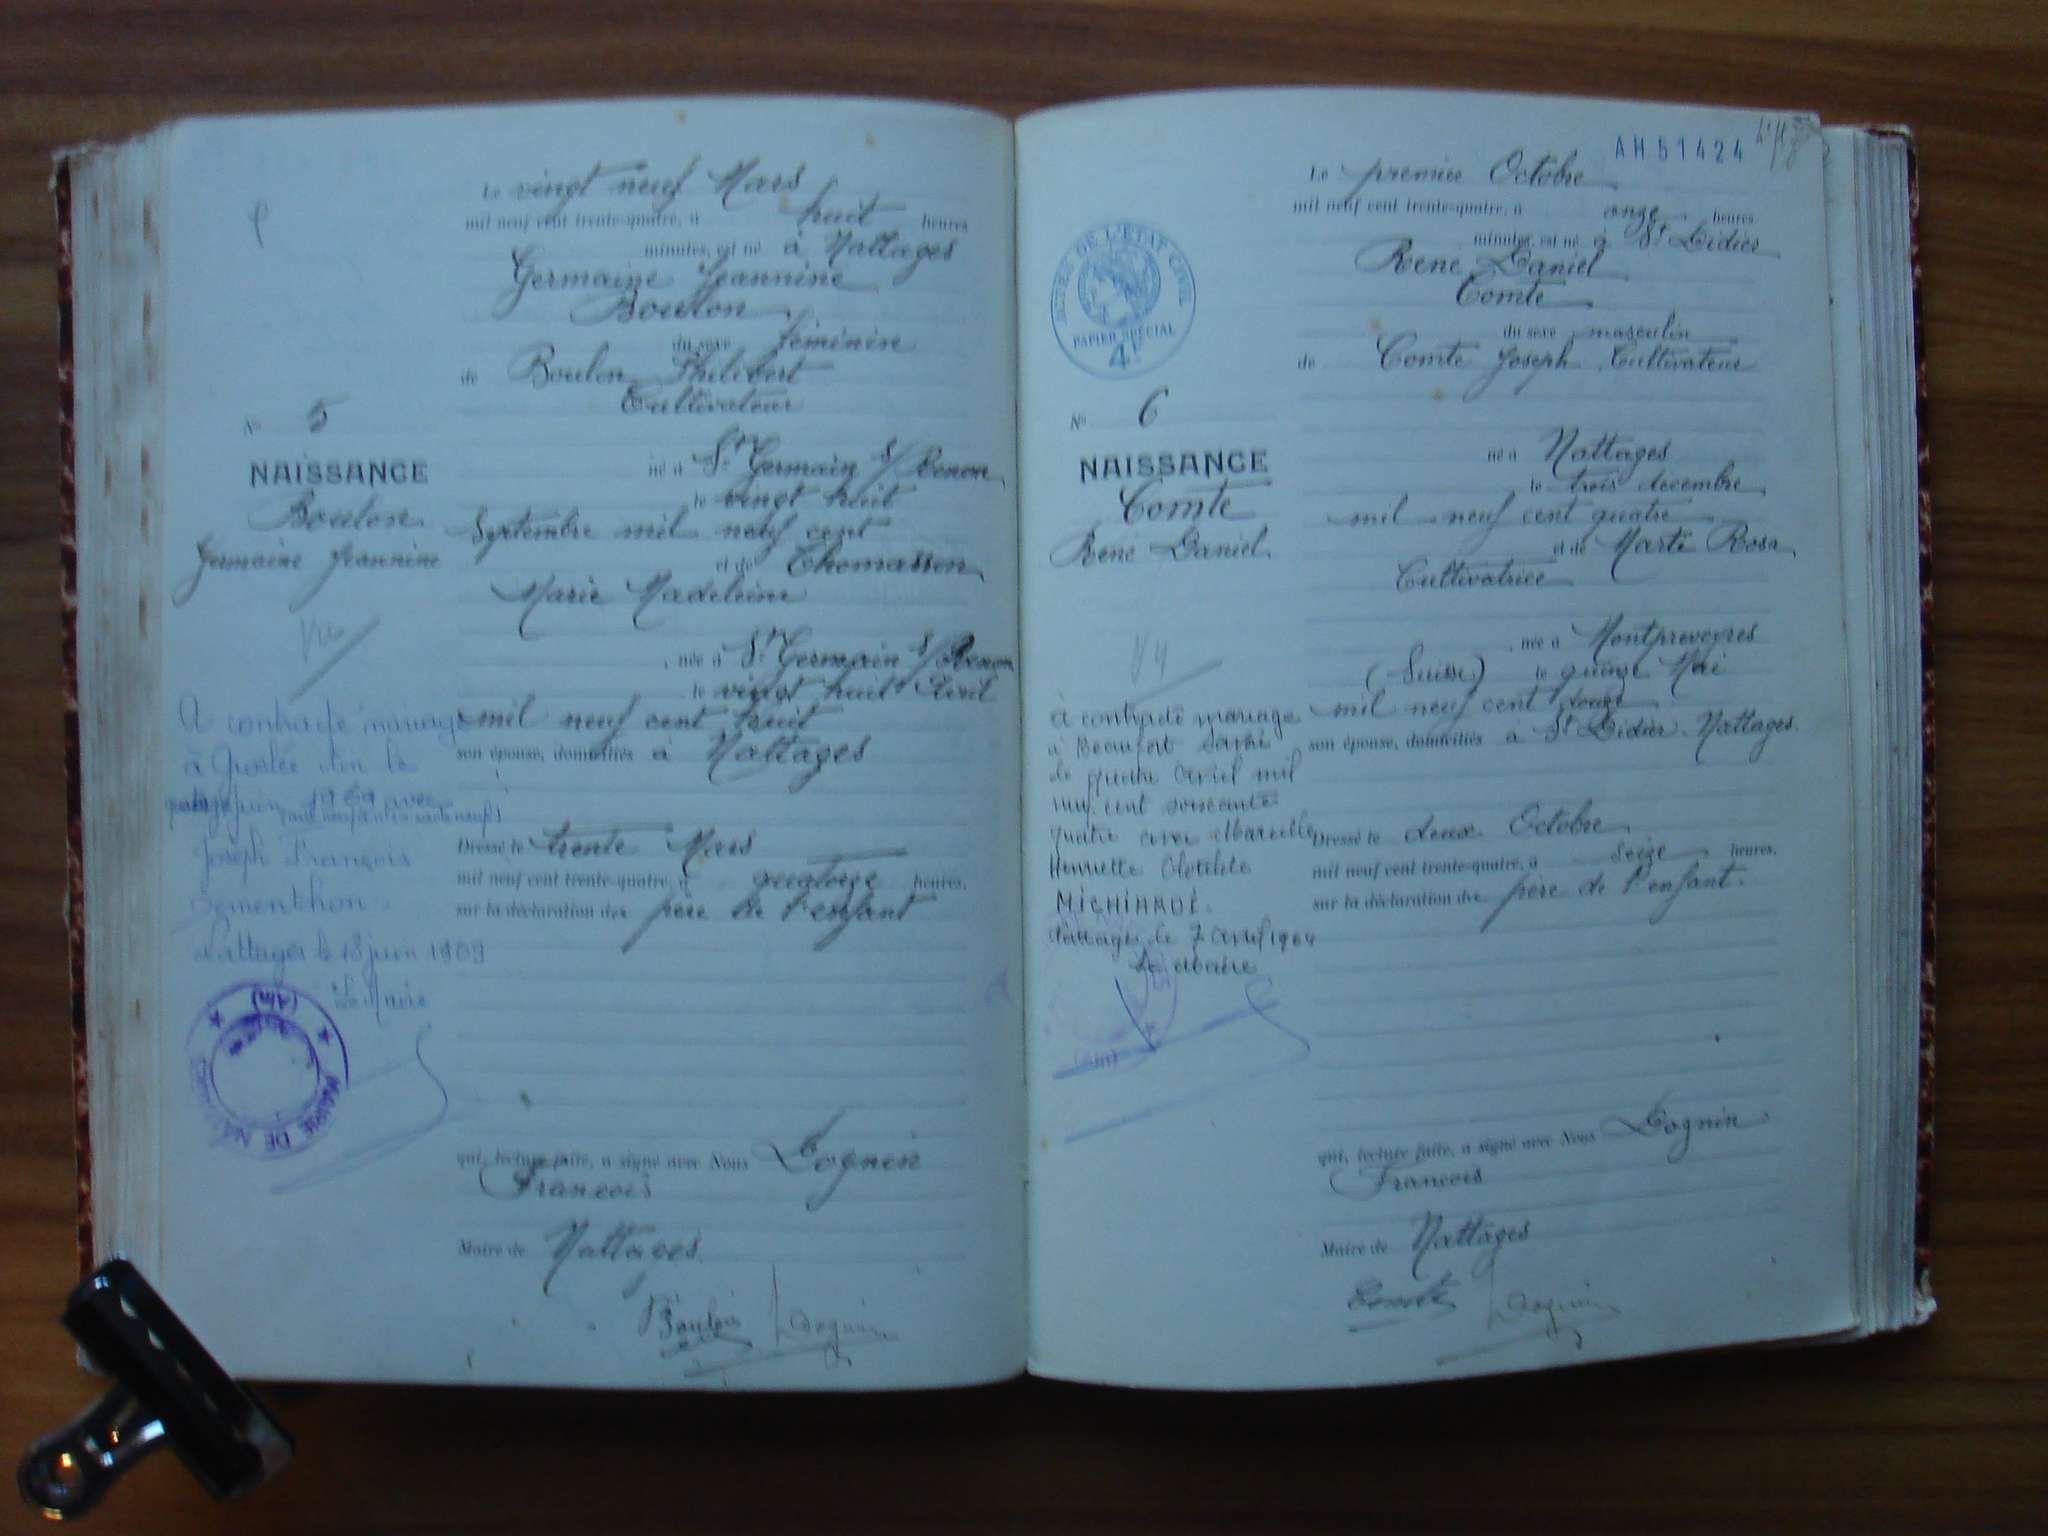 Le vingt neuf Mars
mil neuf cent trente-quatre, à huit heures
minutes, est né à Nattages
Germaine Jeannine
Boulon
du sexe féminin
de Boulon Philibert
Cultivateur
N° 5
né à St Germain s/ Renon
NAISSANCE
le vingt huit
Boulon
Septembre mil neuf cent
Germaine Jeannine
et de Thomasson
Marie Madeleine
Vu
, née à St Germain s/ Renon
le vingt huit Avril
A contracté mariage
mil neuf cent huit
son épouse, domiciliés à Nattages
à Groslée Ain le
juin 1969 avec
Dressé le trente Mars
Joseph François
mil neuf cent trente-quatre, à quatorze heures,
Dementhon.
sur la déclaration du père de l'enfant
Nattages le 18 juin 1969
Le Maire
(Ain)
MAIRIE DE
qui, lecture faite, a signé avec Nous Cognin
François
Maire de Nattages.
Boulon Cognin
AH51424
Le premier Octobre
mil neuf cent trente-quatre, à onze heures
minutes, est né à St Didier
René Daniel
Comte
ACTES DE L'ÉTAT CIVIL
PAPIER SPÉCIAL
4F
du sexe masculin
de Comte Joseph, Cultivateur
N° 6
NAISSANCE
né à Nattages
le trois décembre
Comte
mil neuf cent quatre
René Daniel.
et de Marti Rosa,
Cultivatrice
, née à Montpreveyres
(Suisse) le quinze Mai
mil neuf cent douze
son épouse, domiciliés à St Didier. Nattages.
A contracté mariage
à Beaufort
le quatre avril mil
neuf cent soixante
quatre avec Marcelle
Henriette Clotilde
MICHIARDI.
Nattages le 7 avril 1964
Le Maire
(Ain)
Dressé le deux Octobre
mil neuf cent trente-quatre, à seize heures,
sur la déclaration du père de l'enfant.
qui, lecture faite, a signé avec Nous Cognin
François
Maire de Nattages
Comte Cognin